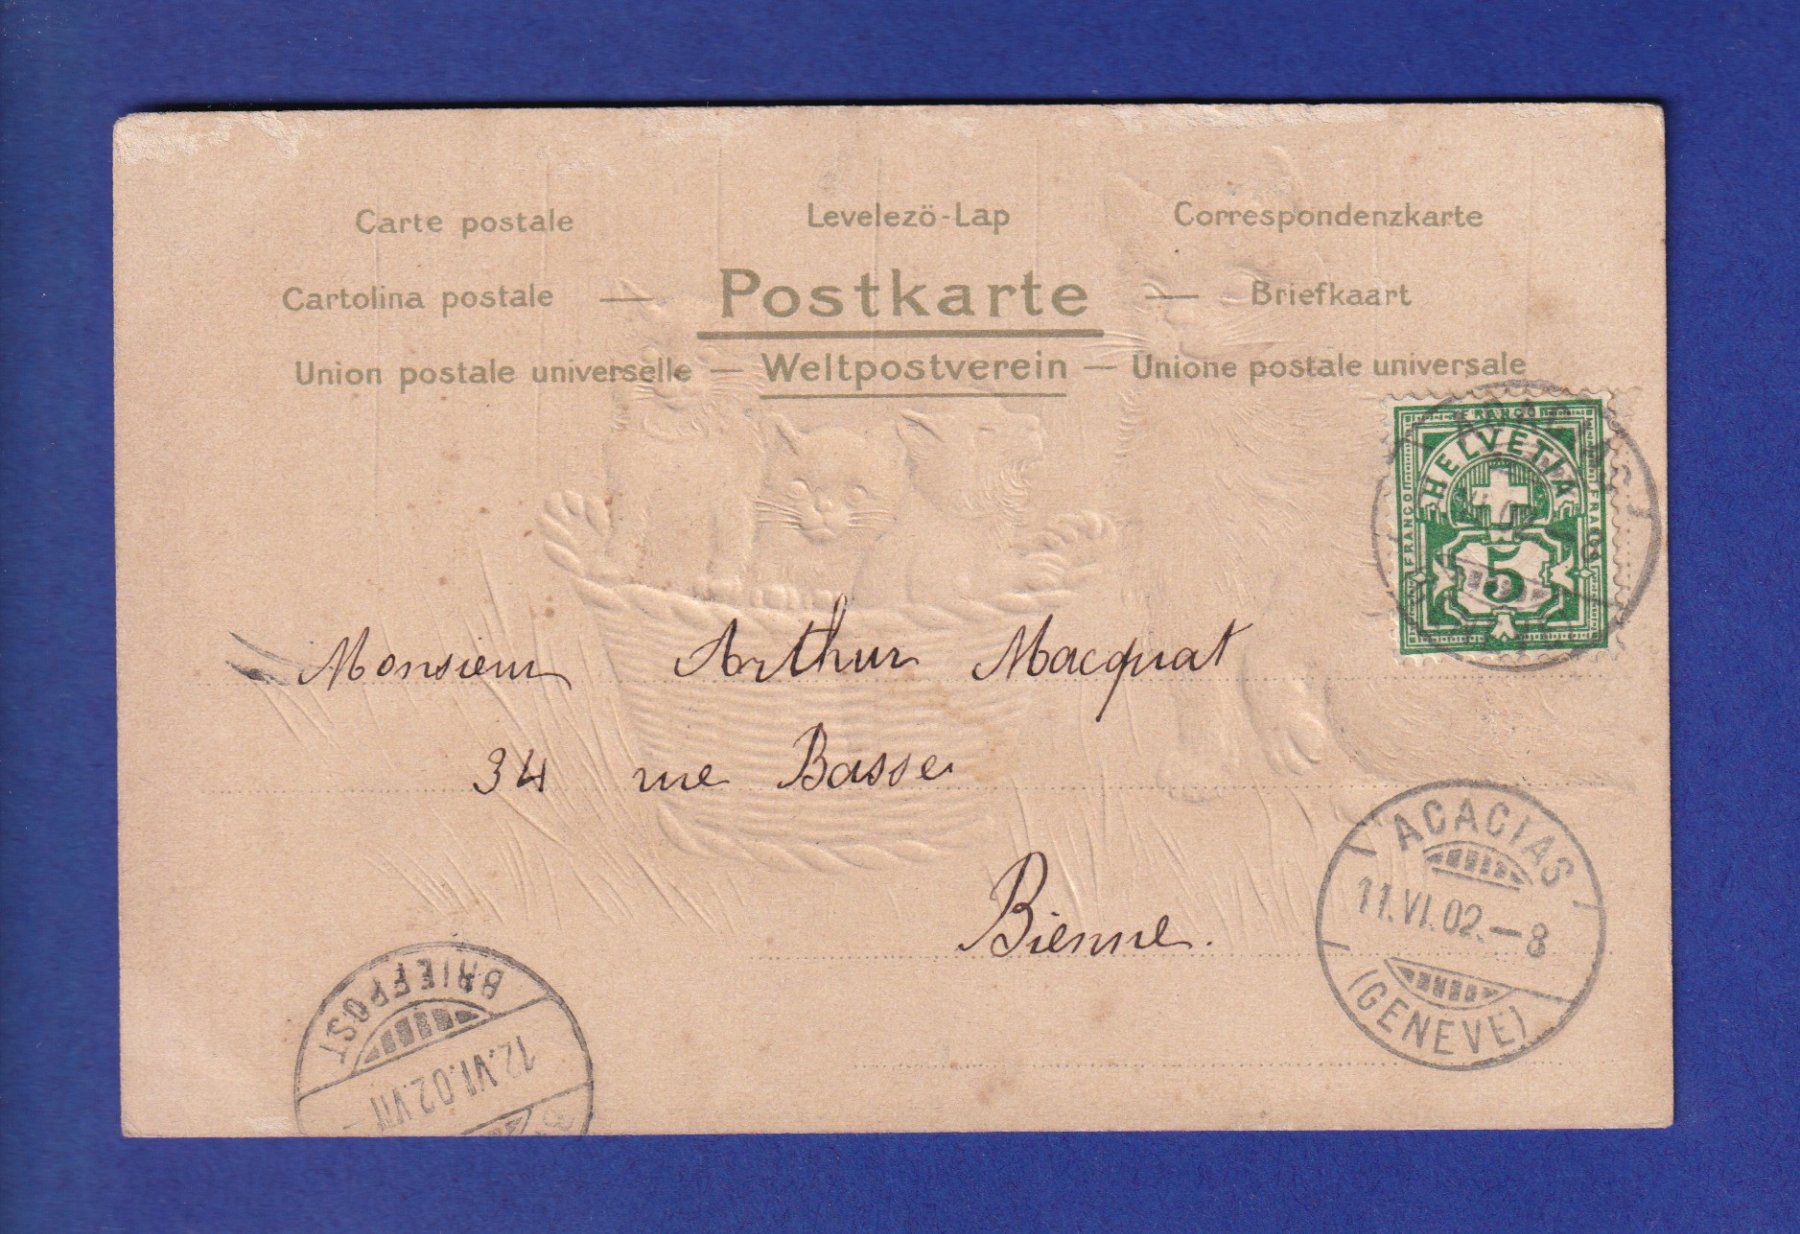 Carte postale Levelezö-Lap Correspondenzkarte
Cartolina postale — Postkarte — Briefkaart
Union postale universelle — Weltpostverein — Unione postale universale
FRANCO
HELVETIA
FRANCO FRANCO
5
Monsieur Arthur Macquat
34 rue Basse
Bienne.
ACACIAS
11.VI.02.–8
(GENEVE)
BRIEFPOST
12.VI.02.VII–